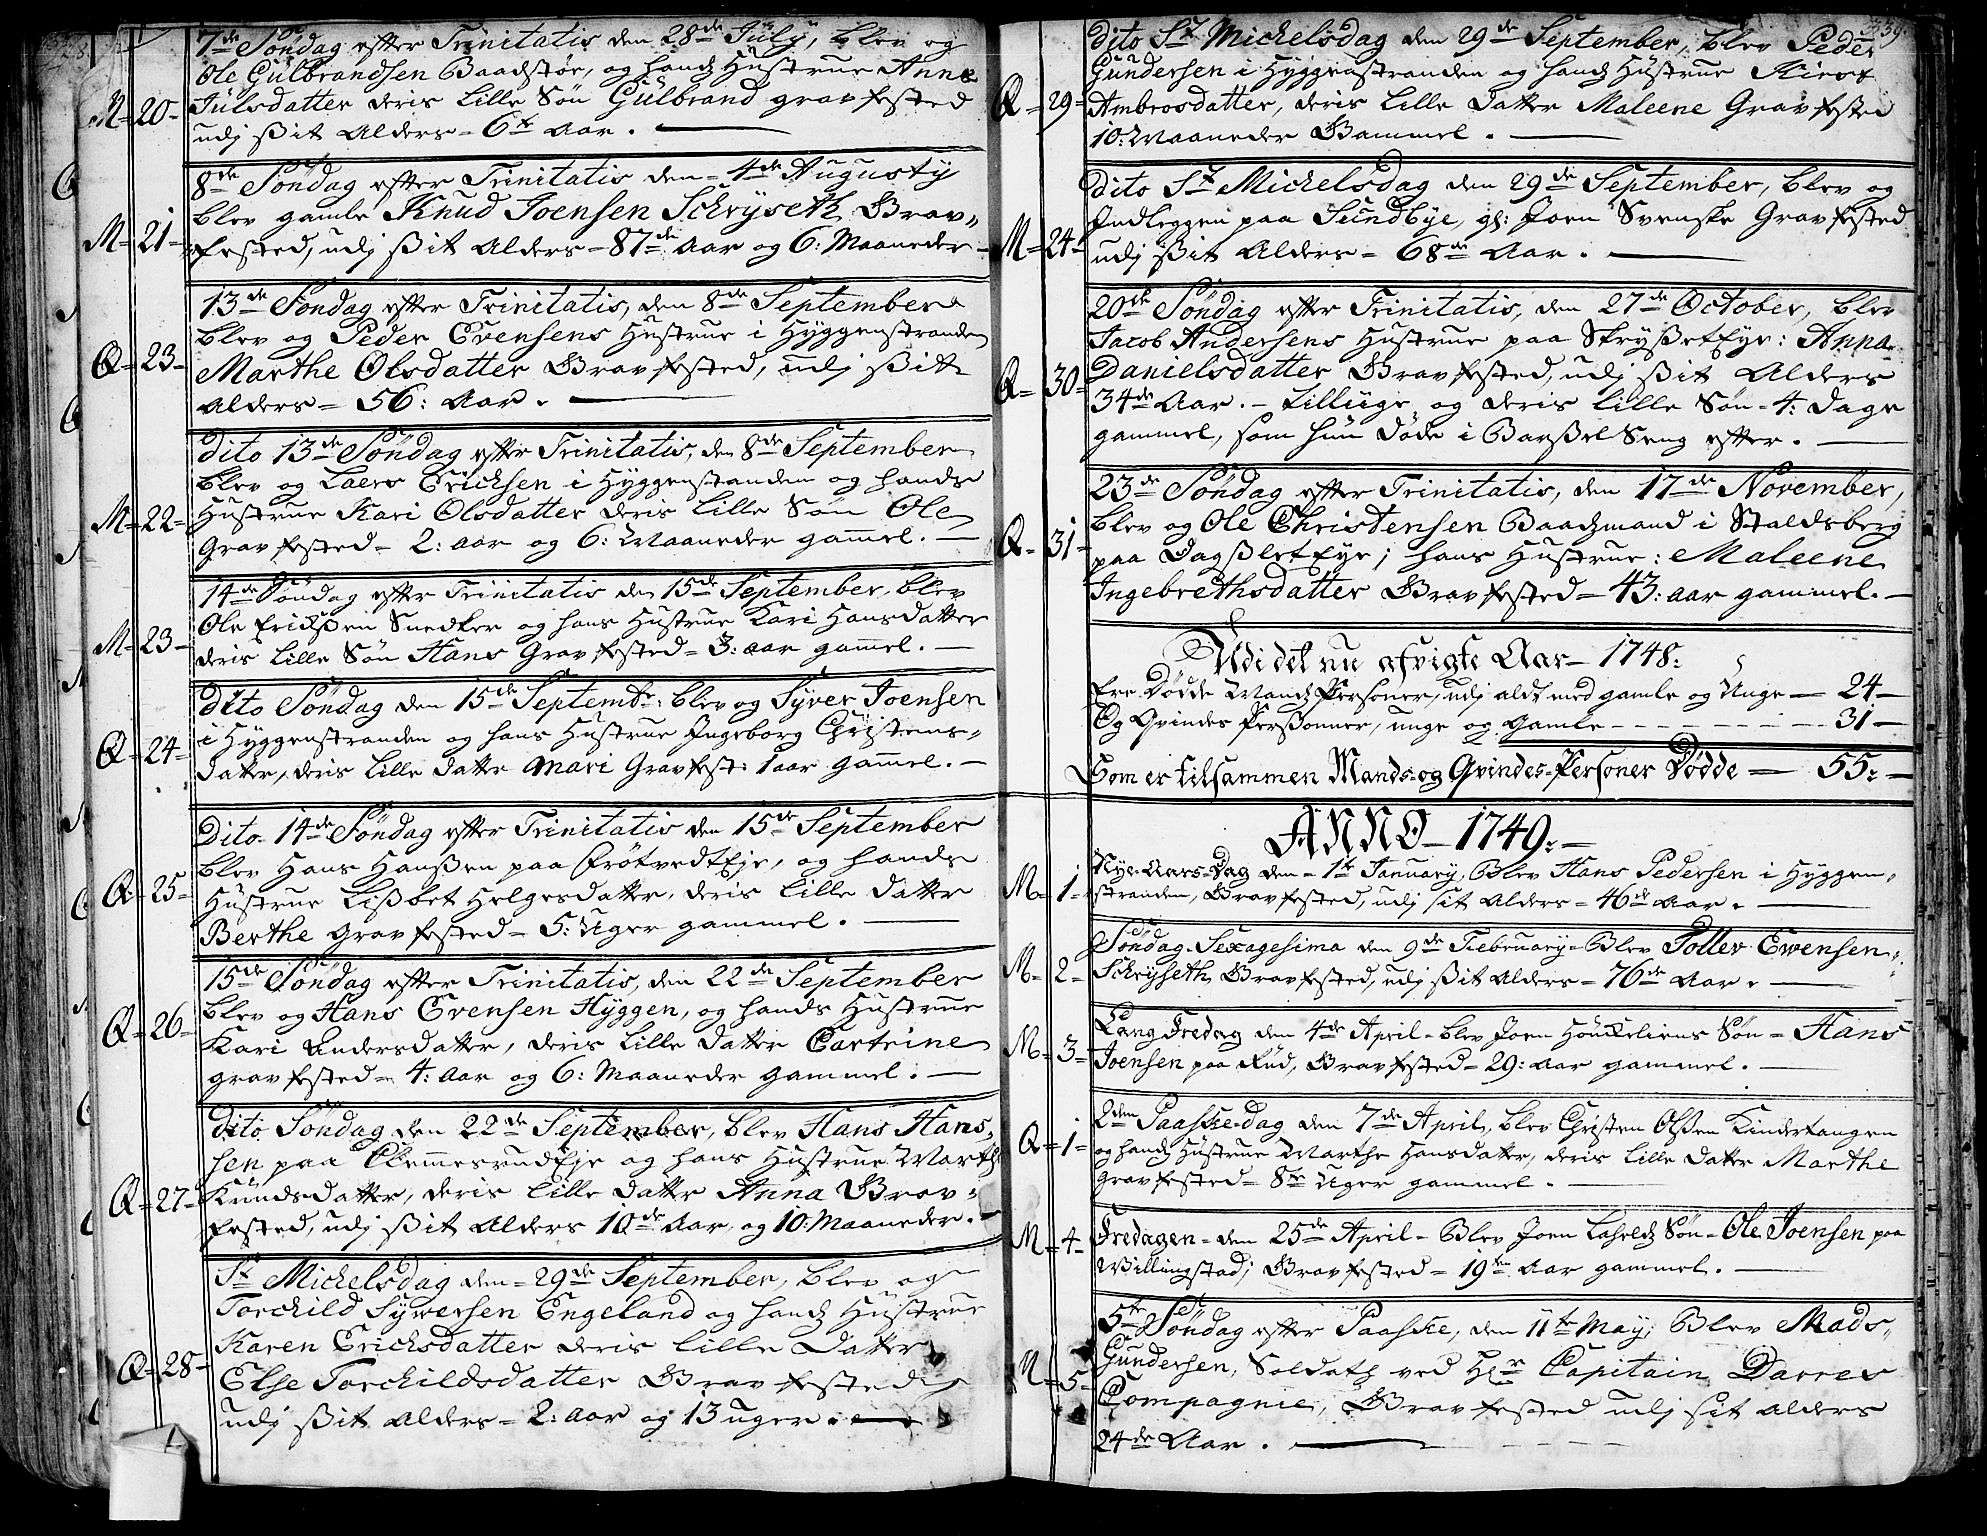 7de Søndag efter Trinitatis den 28de July, blev og
Ole Gülbrandsen Baadstøe, og hands Hustrue Anne
M= 20- Julsdatter deris lille Søn Gülbrand gravfested
udj ßit Alders= 6te Aar.
8de Søndag efter Trinitatis den= 4de Augusty
blev gamle Knud Joensen Schryseth Grav=
M= 21- fested, udj ßit Alders= 87de Aar og 6: Maaneder
13de Søndag efter Trinitatis, den 8de September
blev og Peder Evensens Hustrue i Hyggenstranden
Q= 23- Marthe Olsdatter Gravfested, udj ßit
Alders= 56: Aar.
Dito 13de Søndag efter Trinitatis, den 8de September
blev og Laers Ericksen i Hyggenstranden og hands
M= 22- Hustrue Kari Olsdatter deris lille Søn Ole
Gravfested= 2: aar og 6: Maaneder gammel.
14de Søndag efter Trinitatis den 15de September, blev
Ole Erickßen Snedker og hans Hustrue Kari Hansdatter
M= 23- deris lille Søn Hans Gravfested= 3: aar gammel.
Dito Søndag den 15de Septembr: blev og Syver Joensen
i Hyggenstranden og hans Hustrue Ingeborg Christens=
Q= 24- datter, deris lille datter Mari Gravfest: 1 aar gammel.
Dito 14de Søndag efter Trinitatis den 15de September
blev Hans Hanßen paa Frøtvedteje, og hands
Q= 25- Hustrue Lisbet Helgesdatter, deris lille datter
Berthe gravfested= 5: Uger gammel.
15de Søndag efter Trinitatis, den 22de September
blev og Hans Evensen Hyggen, og hands Hustrue
Q= 26- Kari Andersdatter, deris lille datter Cartrine
gravfested= 4: Aar og 6: Maaneder gammel.
Dito Søndag den 22de September, blev Hans Hans=
sen paa Clemmesrudeje og hans Hustrue Marth
Q= 27- Knudsdatter, deris lille datter Anna Grav=
fested, udj ßit Alders 10de Aar, og 10: Maaneder.
St Michelsdag den= 29de September, blev og
Torchild Syversen Engeland og hands Hustrue
Karen Ericksdatter deris lille Datter
Q= 28- Else Torchildsdatter Gravfested
udj ßit Alders= 2: Aar og 13 uger.
339.
Dito St Michelsdag den 29de September, blev Peder
Gundersen i Hyggenstranden og hands Hustrue Kirst
Q= 29- Ambrosdatter, deris lille datter Maleene Gravfested
10: Maaneder Gammel.
Dito St Michelsdag den 29de September, blev og
Indleggen paa Sundbye, gl: Joen Svenske Gravfested
M= 24- udj ßit Alders= 68de Aar.
20de Søndag efter Trinitatis, den 27de October, blev
Jacob Andersens Hustrue paa Skryßeteye: Anna
Q= 30- Danielsdatter Gravfested, udj ßit Alders
34de Aar.- Tillige og deris lille Søn= 4: Dage
gammel, som hun døde i Barßel Seng efter.
23de Søndag efter Trinitatis, den 17de November,
blev og Ole Christensen Baadzmand i Staldsberg
Q= 31- paa Dagsleteye; hans Hustrue: Maleene
Ingebrethsdatter Gravfested= 43: aar gammel.
Udi det nu afvigte Aar- 1748:
Ere Dødde Mands Personer, udj alt med gamle og Unge — 24-
Og Qvindes Perßonner, unge og Gamle - - - - - 31-
Som er tilsammen Mands- og Qvindes-Personer Dødde — 55:-
ANNO- 1749:-
Nye-Aars-Dag den= 1te January, Blev Hans Pedersen i Hyggen=
M= 1- stranden, Gravfested, udj sit Alders= 46de Aar.
Søndag Sexagesima den 9de Februarij= Blev Tollev Evensen
M= 2- Schryseth Gravfested, udj ßit Alders= 76de Aar.
Lang Fredag den 4de April= blev Joen Hønckeliens Søn= Hans
M= 3- Joensen paa Rud, Gravfested= 29: Aar gammel.
2den Paaske-dag den 7de April, blev Christen Olßen Kindertangen
Q= 1- og hands Hustrue Marthe Hansdatter, deris lille datter Marthe
Gravfested= 8te Uger gammel.
M= 4- Fredagen= den 25de April= Blev Joen Løkelds Søn= Ole Joensen paa
Willingstad; Gravfested= 19ten Aar gammel.
5te Søndag efter Paaske, den 11te May, Blev Mads
Gundersen, Soldat ved Hr Capitain Darres
M= 5- Compagnie, Gravfested udj sit alders
24de Aar.